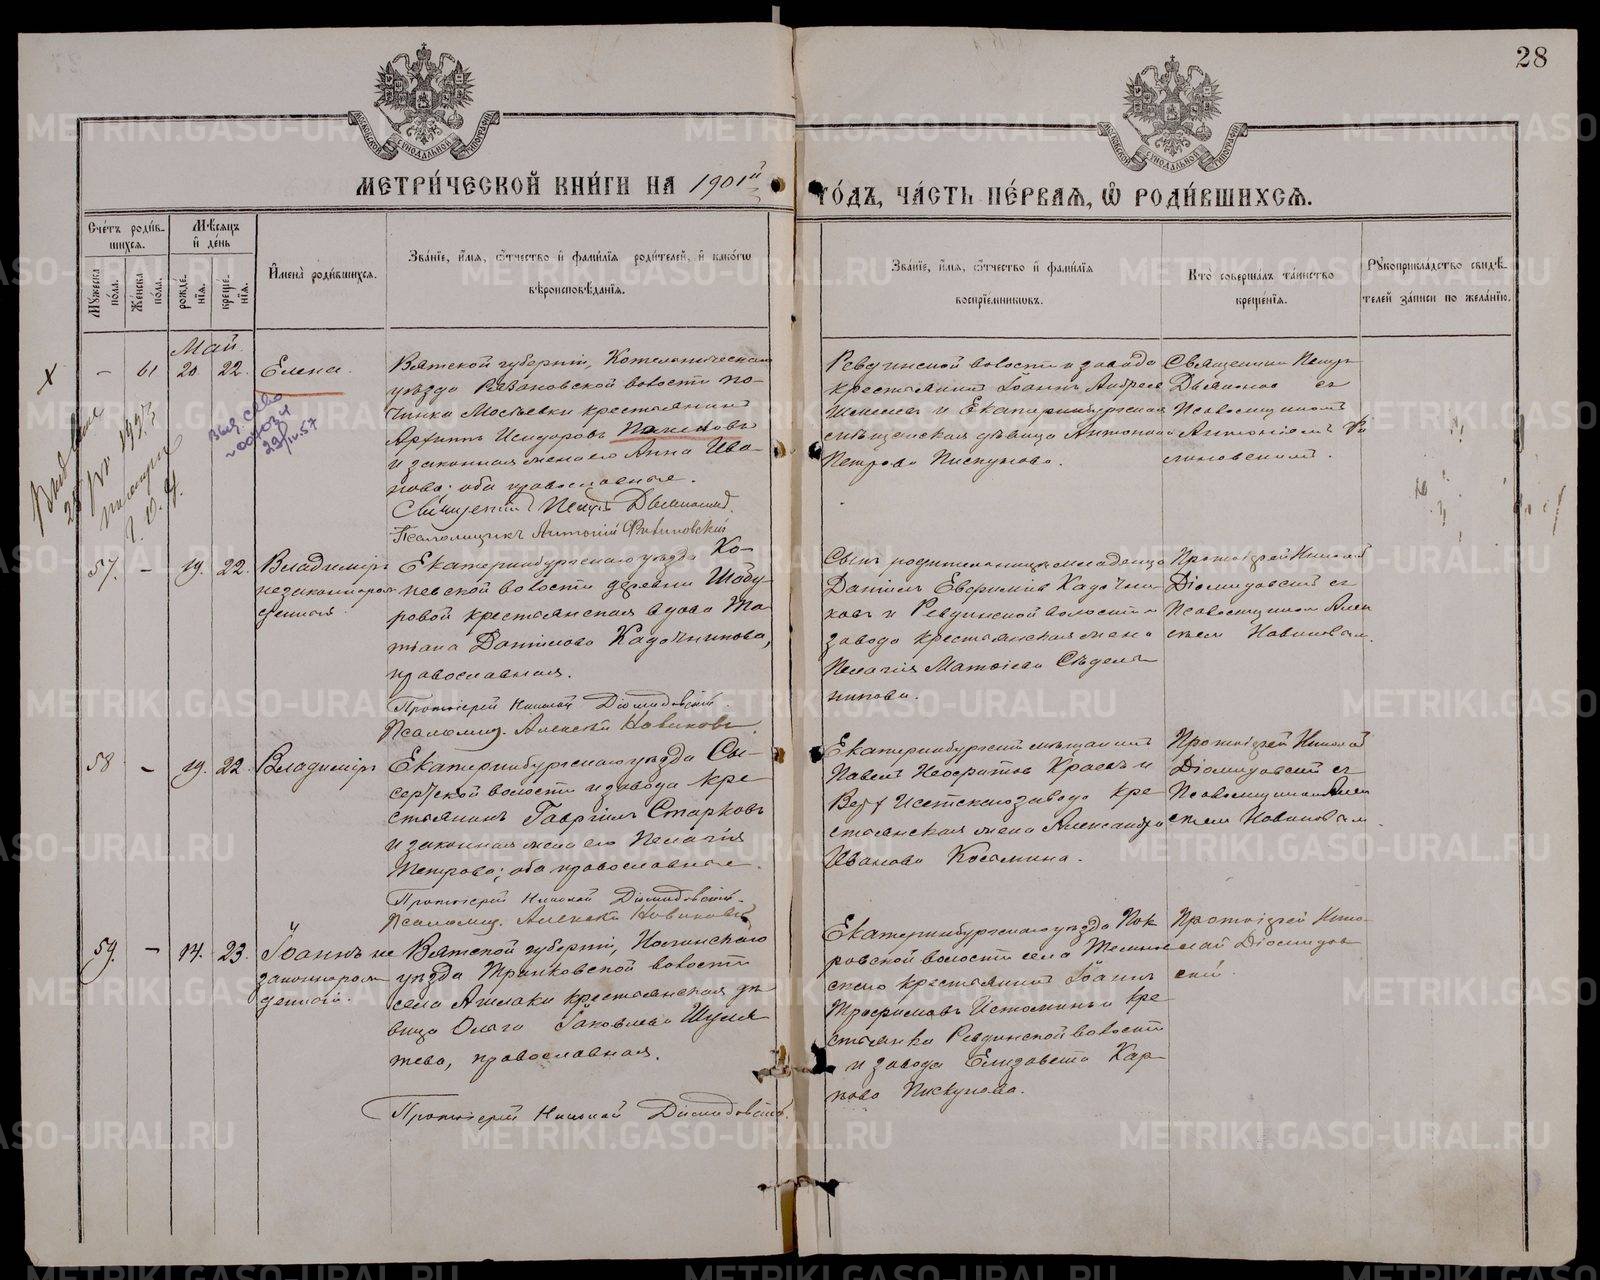 28
МОСКОВСКОЙ СѴНОДАЛЬНОЙ ТИПОГРАФІИ
МОСКОВСКОЙ СѴНОДАЛЬНОЙ ТИПОГРАФІИ
МЕТРИ́ЧЕСКОЙ КНИ́ГИ НА 1901й ГО́ДЪ, ЧА́СТЬ ПЕ́РВАѦ, Ѡ҆ РОДИ́ВШИХСѦ.
Сче́тъ роди́в-
шихсѧ.
Мꙋжеска по́ла.
Же́нска по́ла.
Мѣ́сѧцъ
и҆ де́нь
рожде́-
нїѧ.
креще́-
нїѧ.
И҆мена̀ роди́вшихсѧ.
Зва́нїе, и҆́мѧ, ѻ҆́тчество и҆ фами́лїѧ роди́телей, и҆ како́гѡ
вѣроисповѣ́данїѧ.
Зва́нїе, и҆́мѧ, ѻ҆́тчество и҆ фами́лїѧ
воспрїе́мникѡвъ.
Кто̀ соверша́лъ та́инство
креще́нїѧ.
Рꙋкоприкла́дство свидѣ́-
телей за́писи по жела́нїю.
Май
- 61 20. 22. Елена.
Вятской губерніи, Котельническаго
уѣзда Рязановской волости по-
чинка Мосѣевки крестьянинъ
Архипъ Исидоровъ
и законная жена его Анна Ива-
нова; оба православные.
Священникъ Петръ
Псаломщикъ Антоній
Ревдинской волости и завода
крестьянинъ Іоаннъ Андреев
и Екатеринбургская
мѣщанская дѣвица Антонина
Петрова Пискунова.
Священникъ Петръ
съ
Псаломщикомъ
Антоніемъ
выд. св-во
29/IV.57
57. - 19. 22. Владиміръ
незаконнорож
денный.
Екатеринбургскаго уѣзда Ко-
невской волости деревни Шабу-
ровой крестьянская вдова Та-
тіана Даніилова Кадочникова,
православная.
Протоіерей Николай Діомидовскій.
Псаломщ. Алексѣй Новиковъ
Сынъ родительницы младенца
Даніилъ Евфиміевъ Кадочни-
ковъ и Ревдинской волости и
завода крестьянская жена
Пелагія Матѳіева Сѣдель
никова.
Протоіерей Николай
Діомидовскій съ
Псаломщикомъ Алек
сѣем Новиковым.
58 - 19. 22. Владиміръ
Екатеринбургскаго уѣзда Сы-
сертской волости и завода кре
стьянинъ Гавріилъ Старковъ
и законная жена его Пелагія
Петрова; оба православные.
Протоіерей Николай Діомидовскій.
Псаломщ. Алексѣй Новиковъ
Екатеринбургскій мѣщанинъ
Павелъ и
Верх Исетскаго завода кре
стьянская жена Александра
Иванова Костина.
Протоіерей Николай
Діомидовскій съ
Псаломщикомъ Алек
сѣем Новиковым.
59. - 14. 23. Іоаннъ не
законнорож
денный.
Вятской губерніи, Нолинскаго
уѣзда волости
села крестьянская дѣ
вица Ольга Іаковлева
православная.
Протоіерей Николай Діомидовскій.
Екатеринбургскаго уѣзда Пок
ровской волости села
крестьянинъ Іоаннъ
Трофимовъ Истоминъ и кре
стьянка Ревдинской волости
и завода Елизавета Кар-
пова Пискунова.
Протоіерей Нико
лай Діомидов
скій.